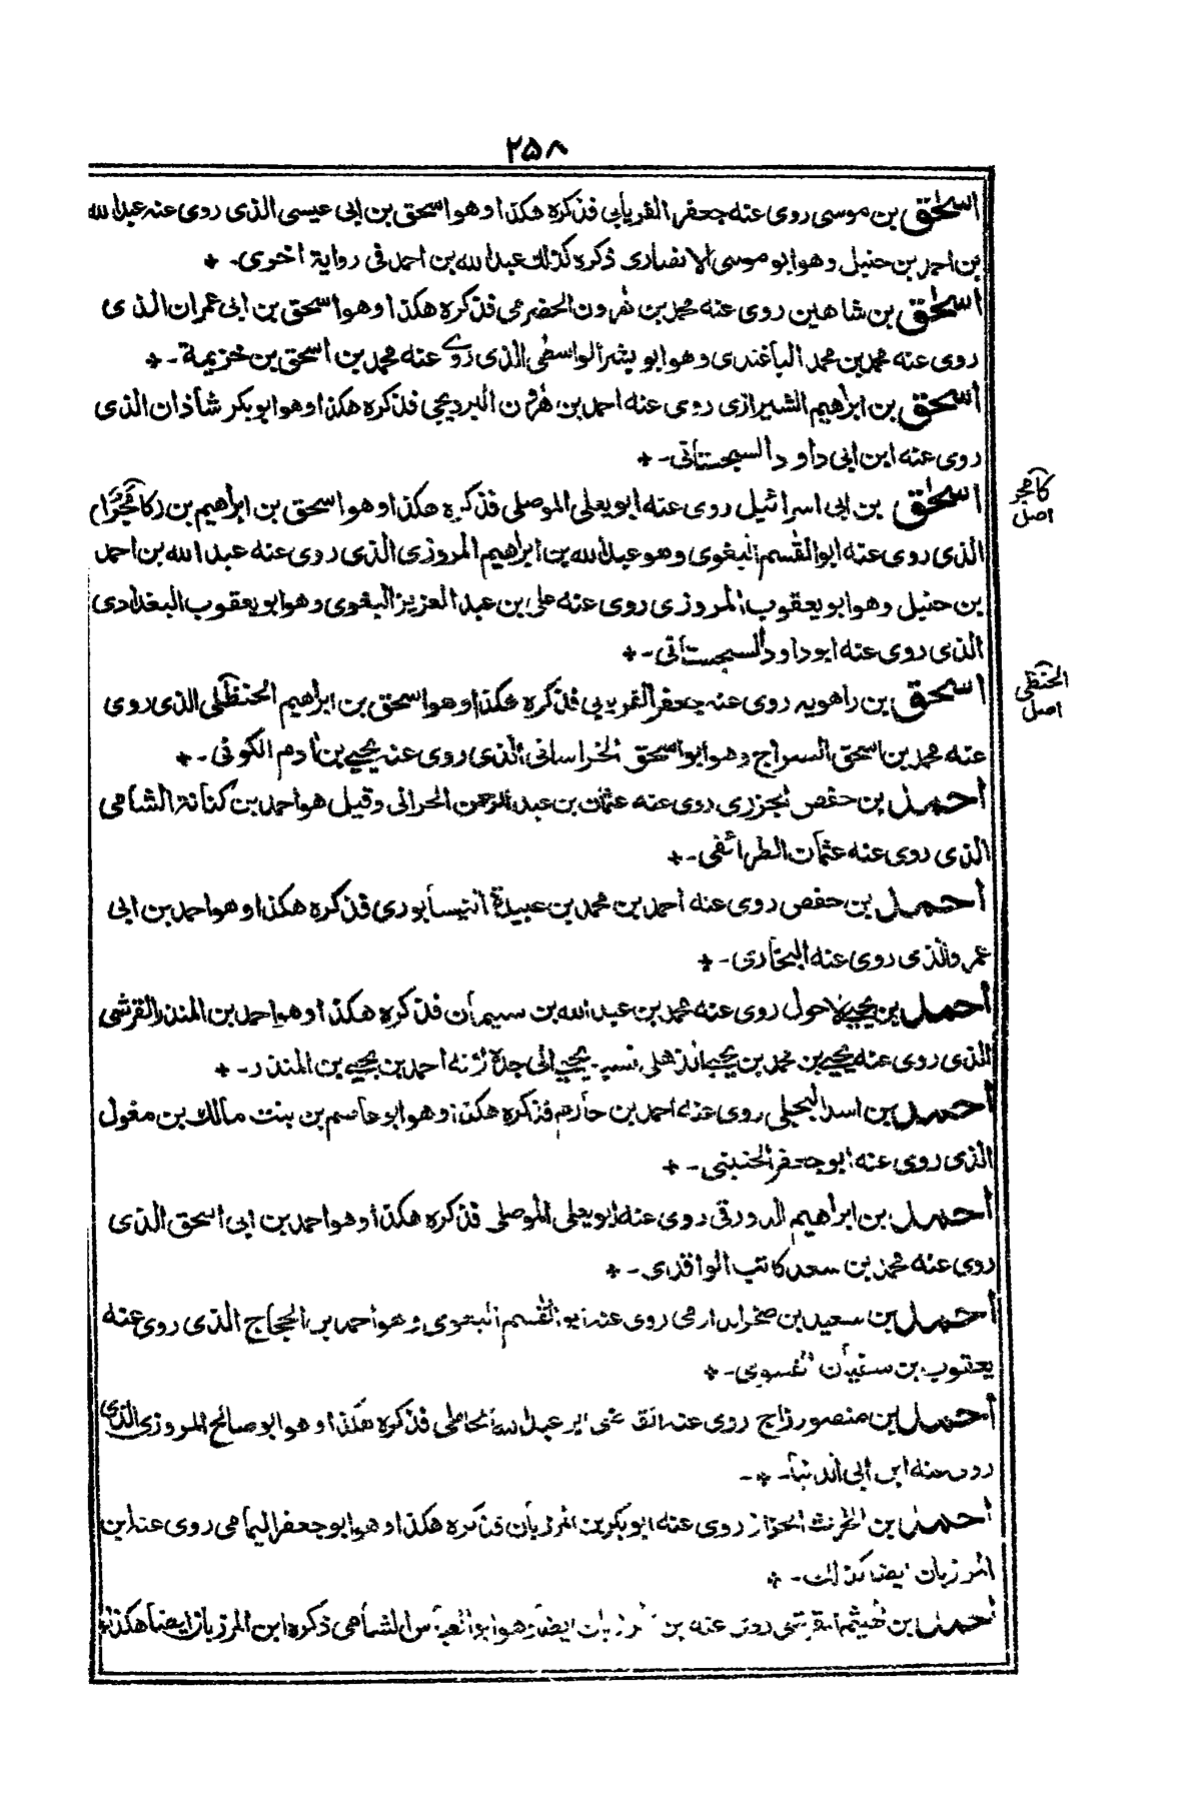 ۲۵۸
اسحٰق بن موسى روى عنه جعفر الفريابي فذكره هكذا وهو اسحق بن ابى عيسى الذى روى عنه عبد الله
بن احمد بن حنبل وهو ابو موسى الانصارى ذكره كذلك عبد الله بن احمد فى رواية اخرى۔
اسحٰق بن شاهين روى عنه محمد بن هٰرون الحضرمي فذكره هكذا وهو اسحق بن ابى عمران الذى
روى عنه محمد بن محمد الباغندى وهو ابو بشر الواسطى الذى روى عنه محمد بن اسحق بن خزيمة۔
اسحق بن ابراهيم الشيرازى روى عنه احمد بن هٰرون البرديجي فذكره هكذا وهو ابو بكر شاذان الذى
روى عنه ابن ابى داود السجستانى۔
اسحٰق بن ابى اسرائيل روى عنه ابو يعلى الموصلى فذكره هكذا وهو اسحق بن ابراهيم بن (كامَجْرَا)
كامجر
اصل
الذى روى عنه ابو القٰسم البغوى وهو عبد الله بن ابراهيم المروزى الذى روى عنه عبد الله بن احمد
بن حنبل وهو ابو يعقوب المروزى روى عنه على بن عبد العزيز البغوى وهو ابو يعقوب البغدادى
الذى روى عنه ابو داود السجستانى۔
اسحق بن راهويه روى عنه جعفر الفريابي فذكره هكذا وهو اسحق بن ابراهيم الحنظلى الذى روى
الحنظلى
اصل
عنه محمد بن اسحق السراج وهو ابو اسحق الخراسانى الذى روى عنه يحيى بن اٰدم الكوفى۔
احمد بن حفص الجزرى روى عنه عثمان بن عبد الرحمن الحرانى وقيل هو احمد بن كنانة الشامى
الذى روى عنه عثمان الطرائفى۔
احمد بن حفص روى عنه احمد بن محمد بن عبيدة النيسابورى فذكره هكذا وهو احمد بن ابى
عمرو الذى روى عنه البخارى۔
احمد بن يحيى الاحول روى عنه محمد بن عبد الله بن سليمان فذكره هكذا وهو احمد بن المنذر القرشى
الذى روى عنه يحيى بن محمد بن يحيى الذهلى نسبه يحيى الى جده لانه احمد بن يحيى بن المنذر۔
احمد بن اسد البجلى روى عنه احمد بن حازم فذكره هكذا وهو ابو عاصم بن بنت مالك بن مغول
الذى روى عنه ابو جعفر الحنينى۔
احمد بن ابراهيم الدورقى روى عنه ابو يعلى الموصلى فذكره هكذا وهو احمد بن ابى اسحق الذى
روى عنه محمد بن سعد كاتب الواقدى۔
احمد بن سعيد بن صخر الدارمى روى عنه ابو القٰسم البغوى وهو احمد بن الحجاج الذى روى عنه
يعقوب بن سفيان الفسوى۔
احمد بن منصور زاج روى عنه القاضى ابو عبد الله المحاملى فذكره هكذا وهو ابو صالح المروزى الذى
روى عنه ابن ابى الدنيا۔
احمد بن الحرث الخزاز روى عنه ابو بكر بن المرزبان فذكره هكذا وهو ابو جعفر اليمامى روى عنه ابن
المرزبان ايضا كذلك۔
احمد بن خيثم القرشى روى عنه بن المرزبان ايضا وهو ابو العباس الشامى ذكره ابن المرزبان ايضا هكذا